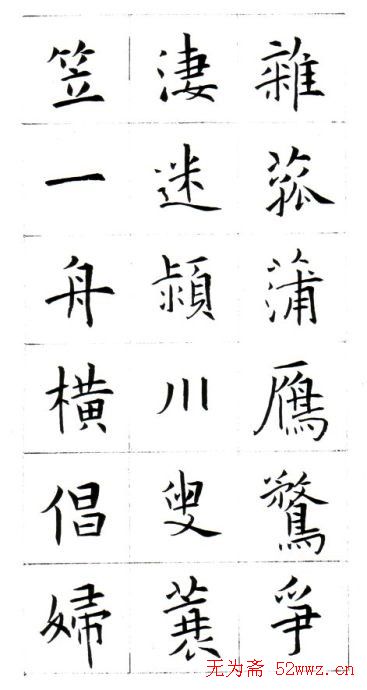 雜菰蒲鴈鶩爭
淒迷潁川叟蓑
笠一舟橫倡婦
无为斋 52wwz.cn